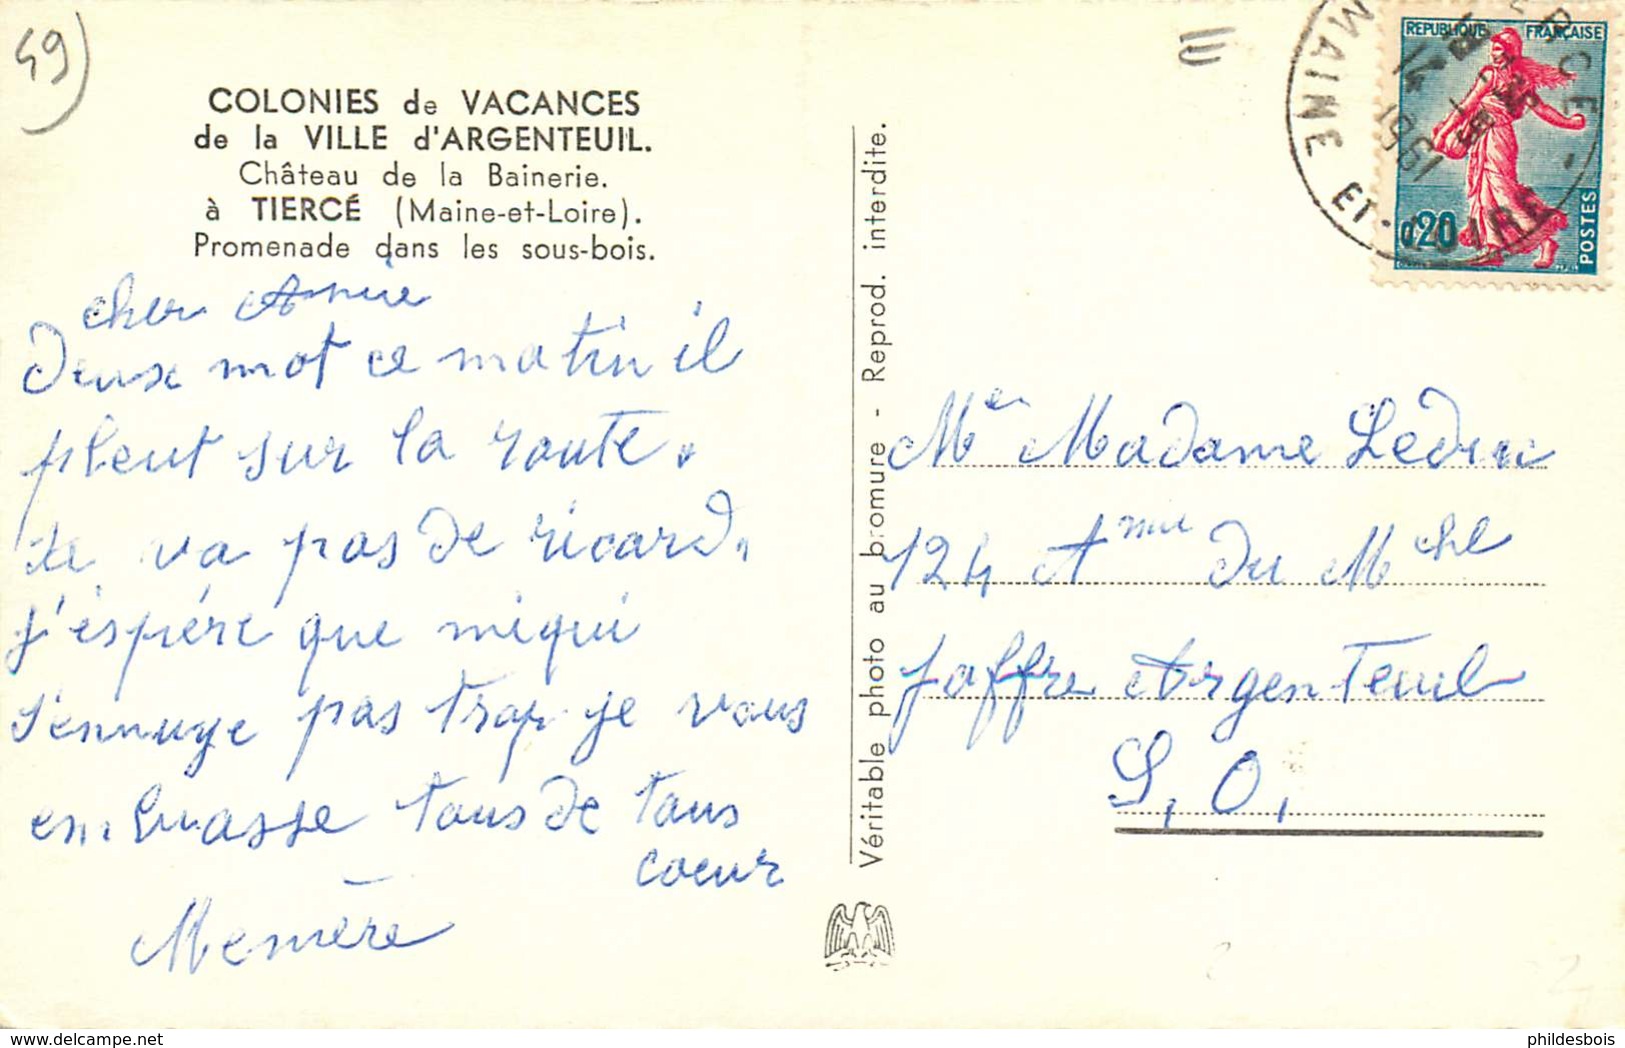 49
COLONIES de VACANCES
de la VILLE d'ARGENTEUIL.
Château de la Bainerie.
à TIERCÉ (Maine-et-Loire).
Promenade dans les sous-bois.
cher Annie
Deux mot ce matin il
pleut sur la route.
te va pas de ricard,
j'espére que miqui
s'ennuye pas trop je vous
embrasse tous de tous
coeur
Memère
Véritable photo au bromure - Reprod. interdite.
REPUBLIQUE FRANÇAISE
0,20
POSTES
MAINE ET-LOIRE
1961
Mr Madame Leduc
124 Amue du Mchl
Joffre Argenteuil
S, O,
phildesbois